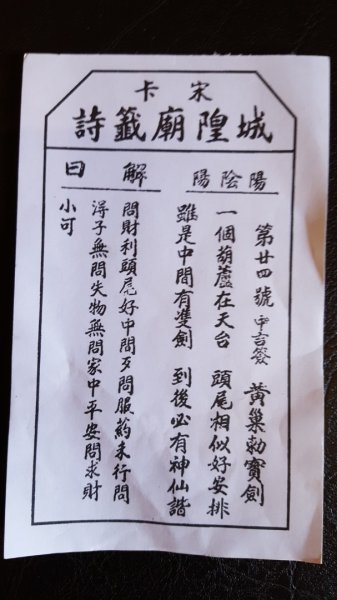 宋卡
城隍廟籤詩
陽陰陽
第廿四號 中吉簽 黃巢勅寶劍
一個葫蘆在天台 頭尾相似好安排
雖是中間有雙劍 到後必有神仙諧
解曰
問財利頭尾好中間歹問服药未行問
淂子無問失物無問家中平安問求財
小可